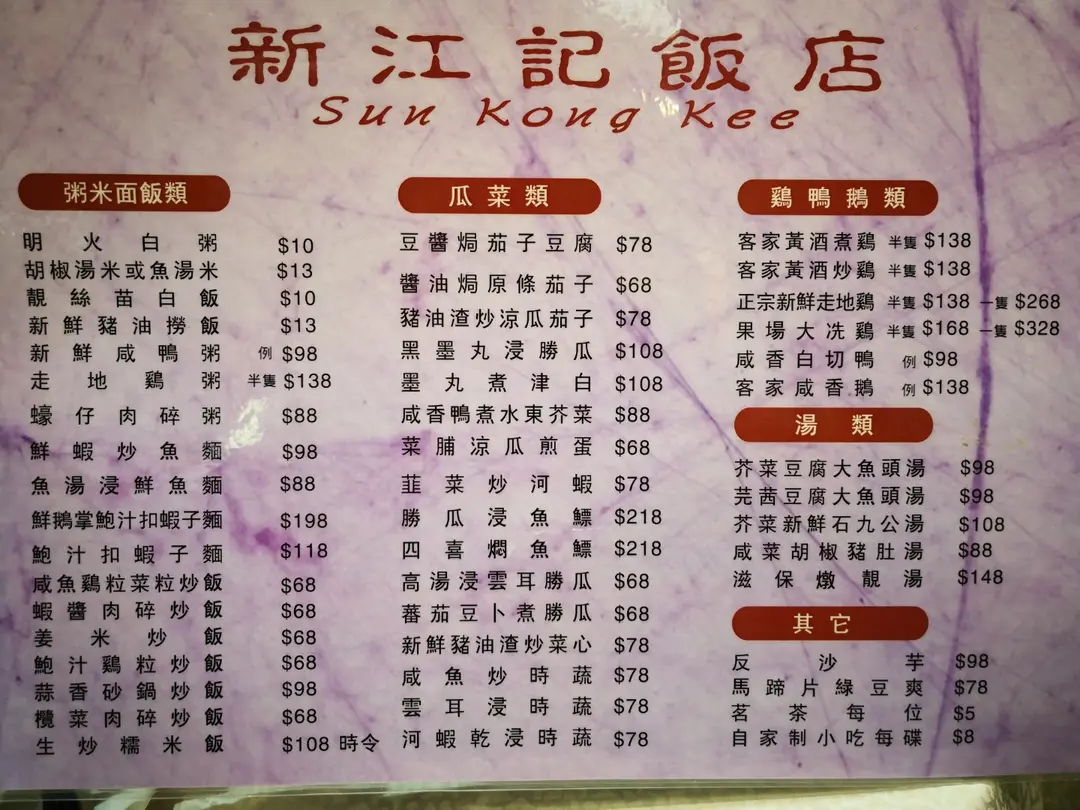 新江記飯店
Sun Kong Kee
粥米面飯類
明火白粥 $10
胡椒湯米或魚湯米 $13
靚絲苗白飯 $10
新鮮豬油撈飯 $13
新鮮咸鴨粥 例 $98
走地鷄粥 半隻 $138
蠔仔肉碎粥 $88
鮮蝦炒魚麵 $98
魚湯浸鮮魚麵 $88
鮮鵝掌鮑汁扣蝦子麵 $198
鮑汁扣蝦子麵 $118
咸魚鷄粒菜粒炒飯 $68
蝦醬肉碎炒飯 $68
姜米炒飯 $68
鮑汁鷄粒炒飯 $68
蒜香砂鍋炒飯 $98
欖菜肉碎炒飯 $68
生炒糯米飯 $108 時令
瓜菜類
豆醬焗茄子豆腐 $78
醬油焗原條茄子 $68
豬油渣炒涼瓜茄子 $78
黑墨丸浸勝瓜 $108
墨丸煮津白 $108
咸香鴨煮水東芥菜 $88
菜脯涼瓜煎蛋 $68
韮菜炒河蝦 $78
勝瓜浸魚鰾 $218
四喜燜魚鰾 $218
高湯浸雲耳勝瓜 $68
蕃茄豆卜煮勝瓜 $68
新鮮豬油渣炒菜心 $78
咸魚炒時蔬 $78
雲耳浸時蔬 $78
河蝦乾浸時蔬 $78
鷄鴨鵝類
客家黃酒煮鷄 半隻 $138
客家黃酒炒鷄 半隻 $138
正宗新鮮走地鷄 半隻 $138 一隻 $268
果場大冼鷄 半隻 $168 一隻 $328
咸香白切鴨 例 $98
客家咸香鵝 例 $138
湯類
芥菜豆腐大魚頭湯 $98
芫茜豆腐大魚頭湯 $98
芥菜新鮮石九公湯 $108
咸菜胡椒豬肚湯 $88
滋保燉靚湯 $148
其它
反沙芋 $98
馬蹄片綠豆爽 $78
茗茶每位 $5
自家制小吃每碟 $8